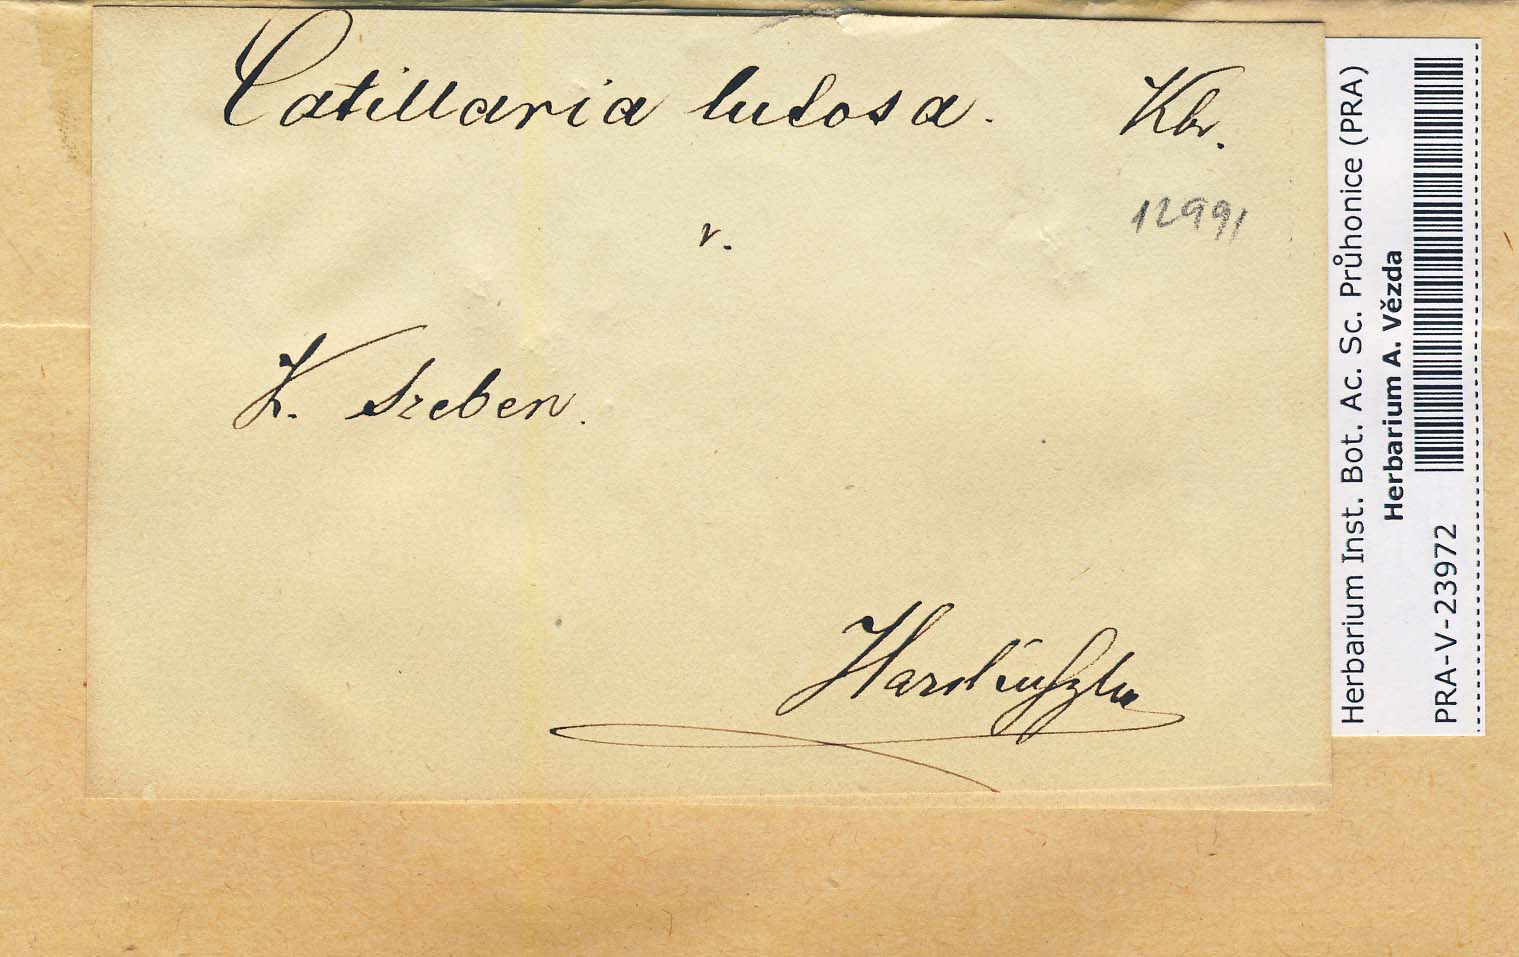 Catillaria lutosa. Kbr.
12991
v.
K. Szeben.
Hazslinszky
Herbarium Inst. Bot. Ac. Sc. Průhonice (PRA)
Herbarium A. Vězda
PRA-V-23972